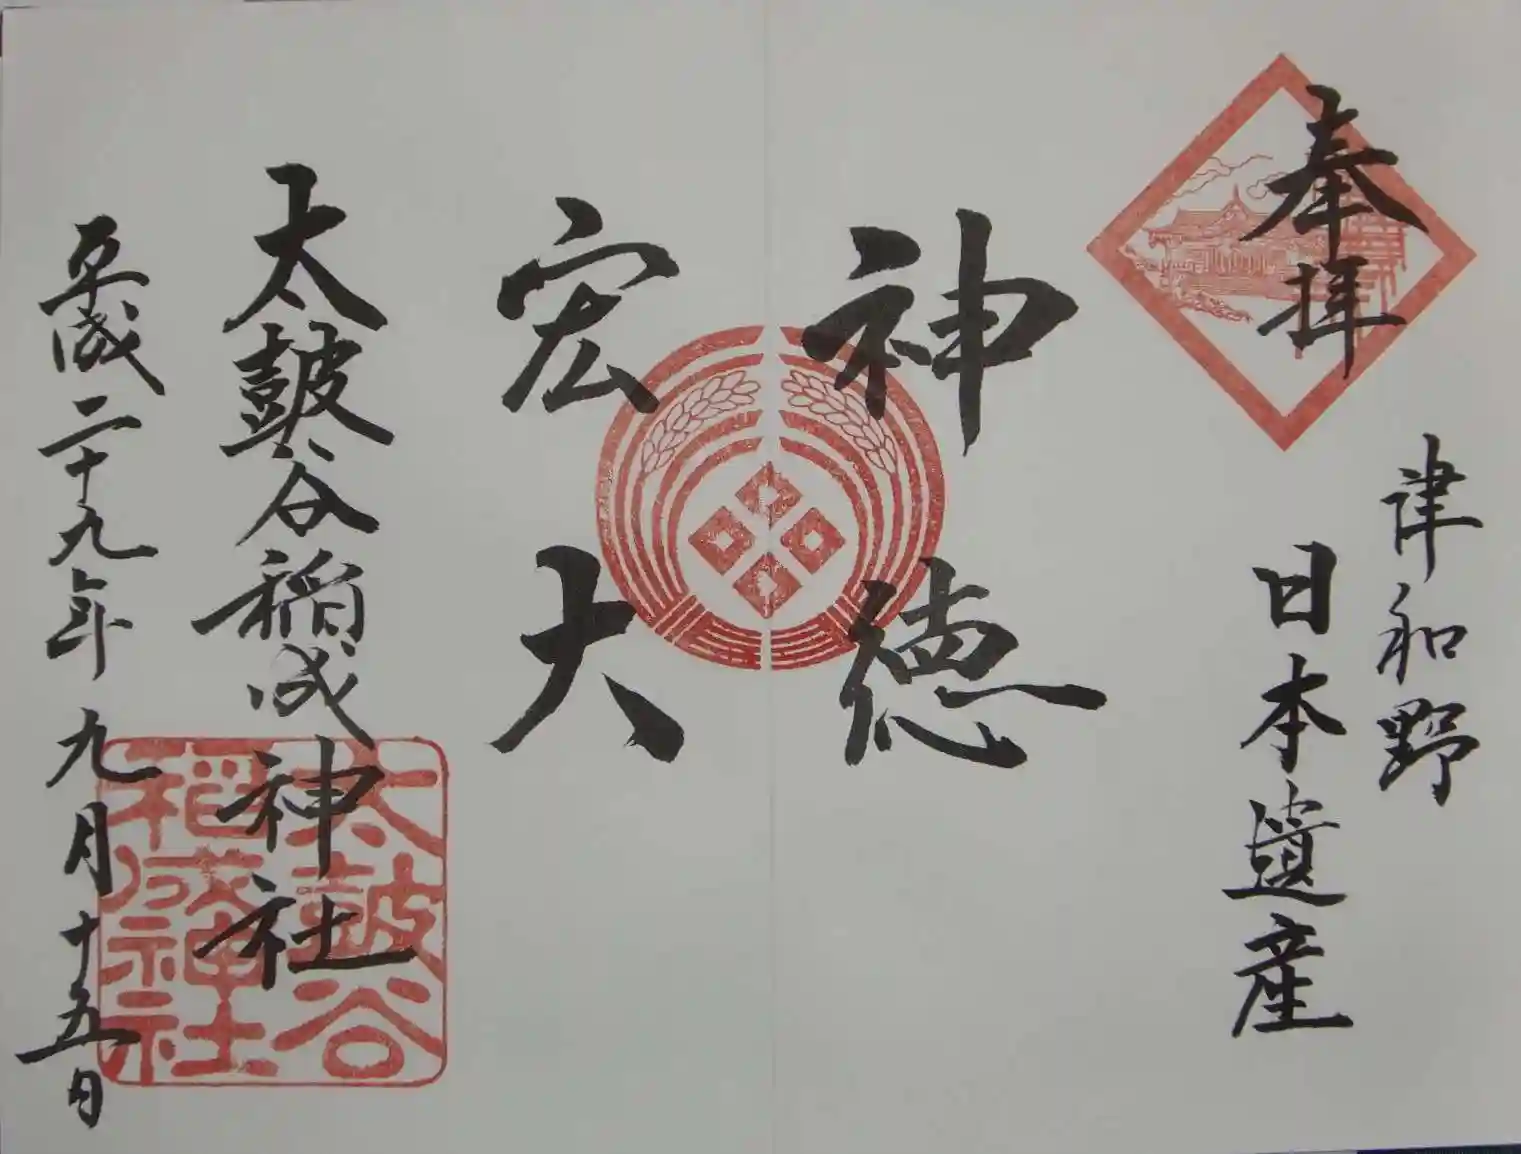 奉拝
津和野
日本遺産
神徳
宏大
太皷谷稲成神社
太皷谷
稲成神社
平成二十九年九月十五日